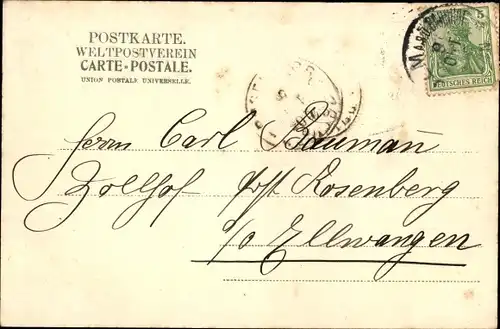 POSTKARTE.
WELTPOSTVEREIN
CARTE-POSTALE.
UNION POSTALE UNIVERSELLE.
5
DEUTSCHES REICH
Herrn Carl Bauman̄
Zollhof Post Rosenberg
p/o Ellwangen